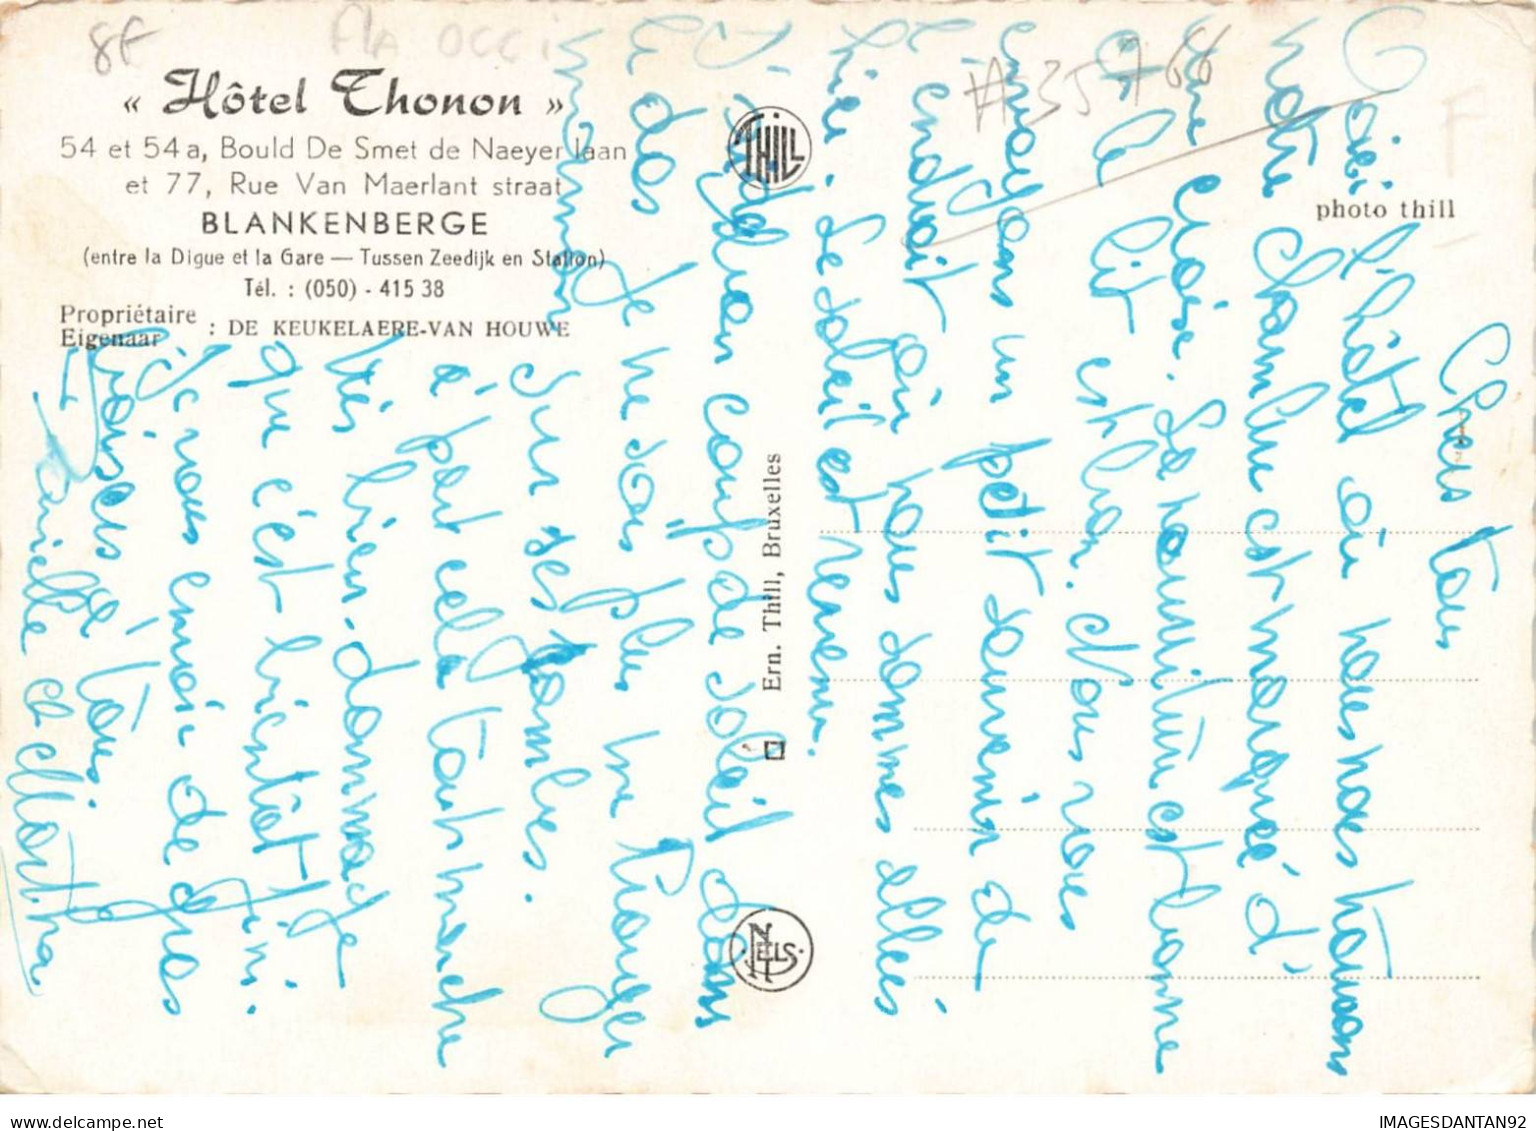 8F
Fla occi
« Hôtel Thonon »
54 et 54a, Bould De Smet de Naeyer laan
et 77, Rue Van Maerlant straat
BLANKENBERGE
(entre la Digue et la Gare — Tussen Zeedijk en Station)
Tél. : (050) - 415 38
Propriétaire
Eigenaar : DE KEUKELAERE-VAN HOUWE
THILL
Ern. Thill, Bruxelles
NELS
photo thill
A35766
F
Chers tous
Voici l'hôtel où nous nous trouvons
notre chambre est marquée d'
une croix. La nourriture est bonne
et le lit est bon. Nous vous
envoyons un petit souvenir de
l'endroit où nous sommes allés
hier. Le soleil est revenu.
coup de soleil dans
le dos je ne sais plus me bouger
maman
sur ses jambes.
à part cela tout marche
très bien. dommage
que c'est bientôt fini.
Je vous envoie de gros
baisers à tous
Danielle et Martha
IMAGESDANTAN92
delcampe.net